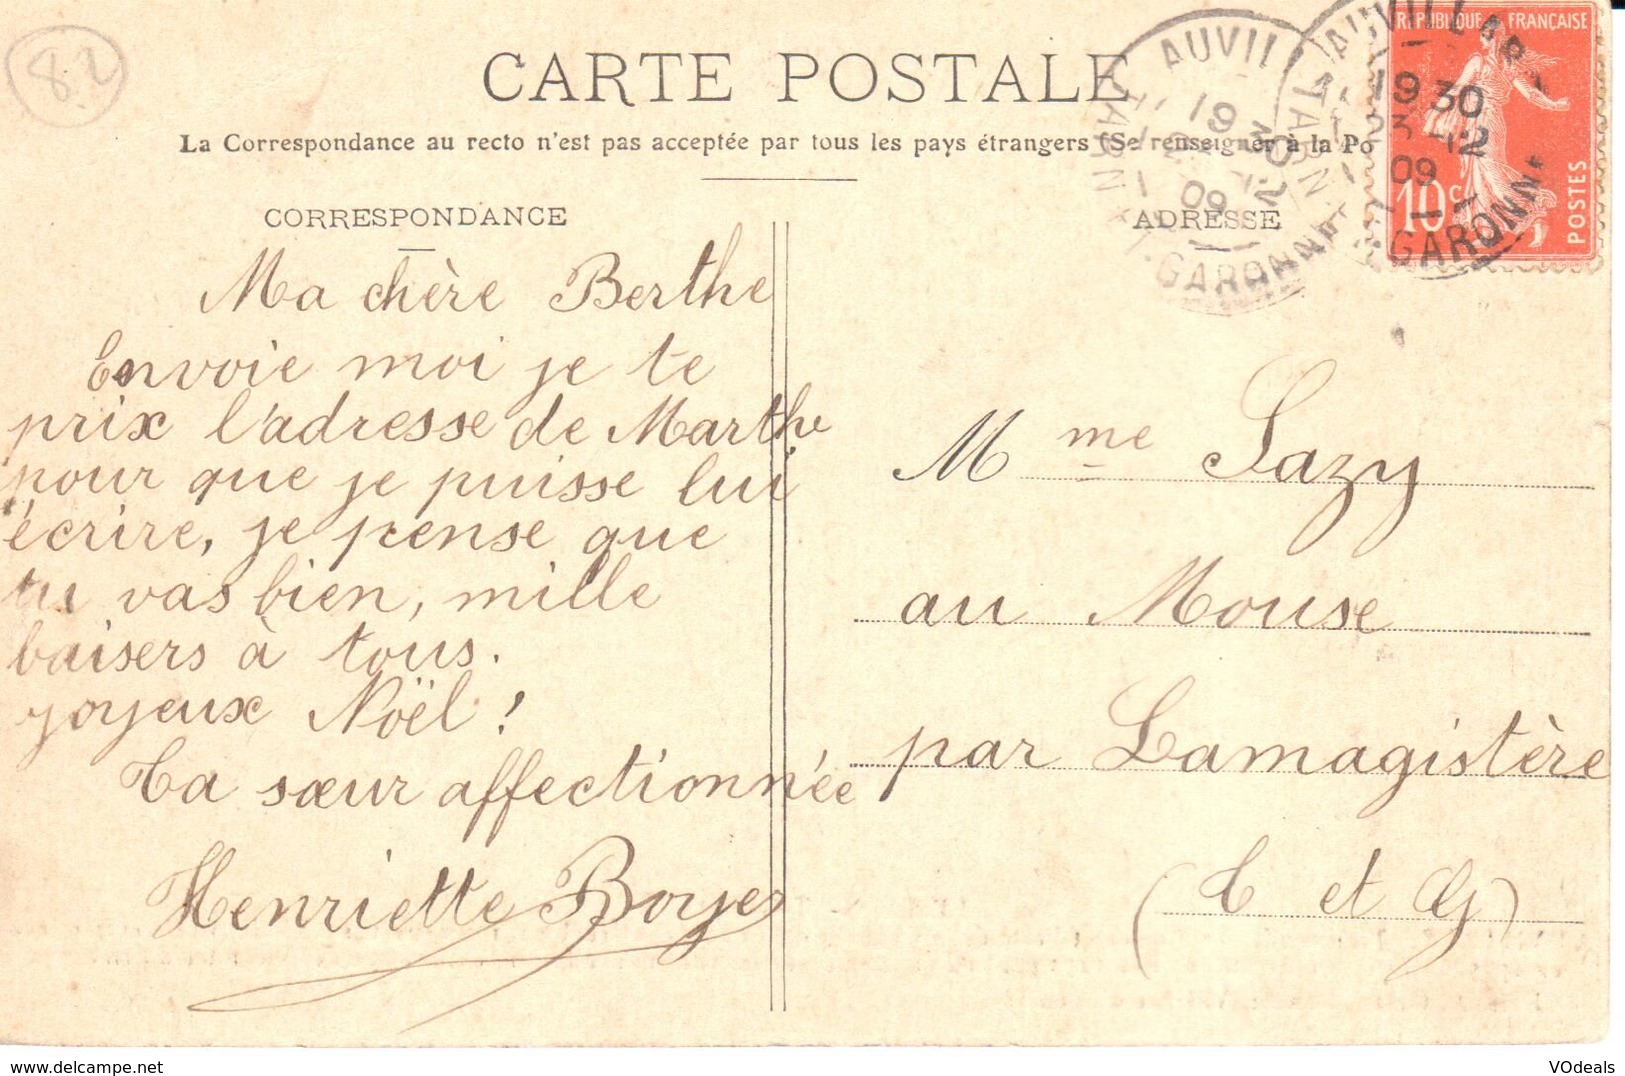 82
CARTE POSTALE
La Correspondance au recto n'est pas acceptée par tous les pays étrangers (Se renseigner à la Po
CORRESPONDANCE
Ma chère Berthe
Envoie moi je te
prix l'adresse de Marthe
pour que je puisse lui
écrire, je pense que
tu vas bien, mille
baisers à tous.
joyeux Noël !
Ta sœur affectionnée
Henriette Boyer
ADRESSE
Mme Sazy
au Mouse
par Lamagistère
(T et G)
REPUBLIQUE FRANÇAISE
10c
POSTES
AUVIL
19 30
12
09
TARN
GARONNE
AUVILLAR
19 30
23 - 12
09
TARN
GARONNE
VOdeals